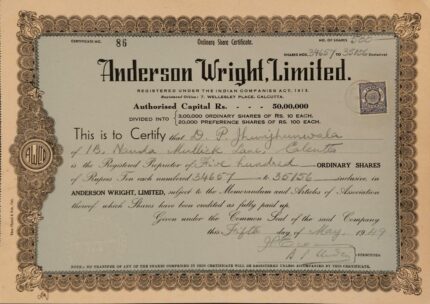 CERTIFICATE NO. 86 Ordinary Share Certificate. NO. OF SHARES 500
SHARES NOS. 34657 TO 35156 (Inclusive)
Anderson Wright, Limited.
REGISTERED UNDER THE INDIAN COMPANIES ACT, 1913.
Registered Office: 7, WELLESLEY PLACE, CALCUTTA.
Authorised Capital Rs. - - - 50,00,000
DIVIDED INTO
3,00,000 ORDINARY SHARES OF RS. 10 EACH.
20,000 PREFERENCE SHARES OF RS. 100 EACH.
This is to Certify that D. P. Jhunjhunwala
of 1B, Nanda Mullick Lane, Calcutta
is the Registered Proprietor of Five hundred ORDINARY SHARES
of Rupees Ten each numbered 34657 to 35156 inclusive, in
ANDERSON WRIGHT, LIMITED, subject to the Memorandum and Articles of Association
thereof which Shares have been credited as fully paid up.
Given under the Common Seal of the said Company
this Fifth day of May 1949
DIRECTORS
NOTE.: NO TRANSFER OF ANY OF THE SHARES COMPRISED IN THIS CERTIFICATE WILL BE REGISTERED UNLESS ACCOMPANIED BY THIS CERTIFICATE.
AWLTD